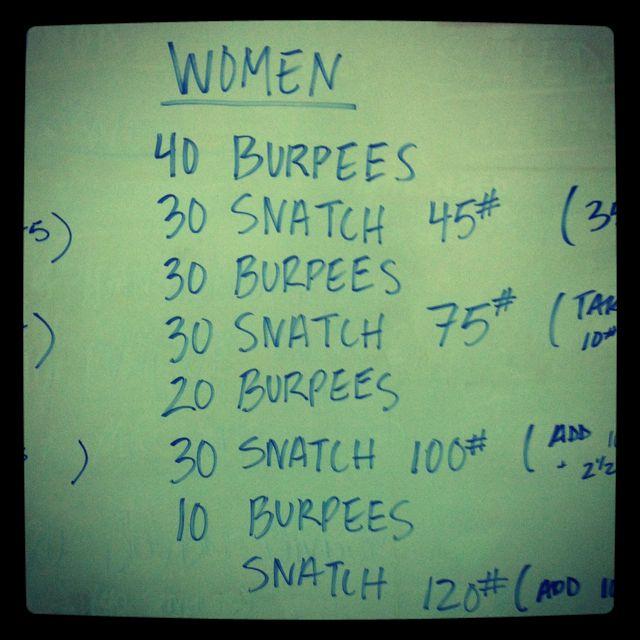 WOMEN
40 BURPEES
5) 30 SNATCH 45# (35
30 BURPEES
) 30 SNATCH 75# (
10#
20 BURPEES
) 30 SNATCH 100# (ADD 1
+ 2½
10 BURPEES
SNATCH 120# (ADD 10